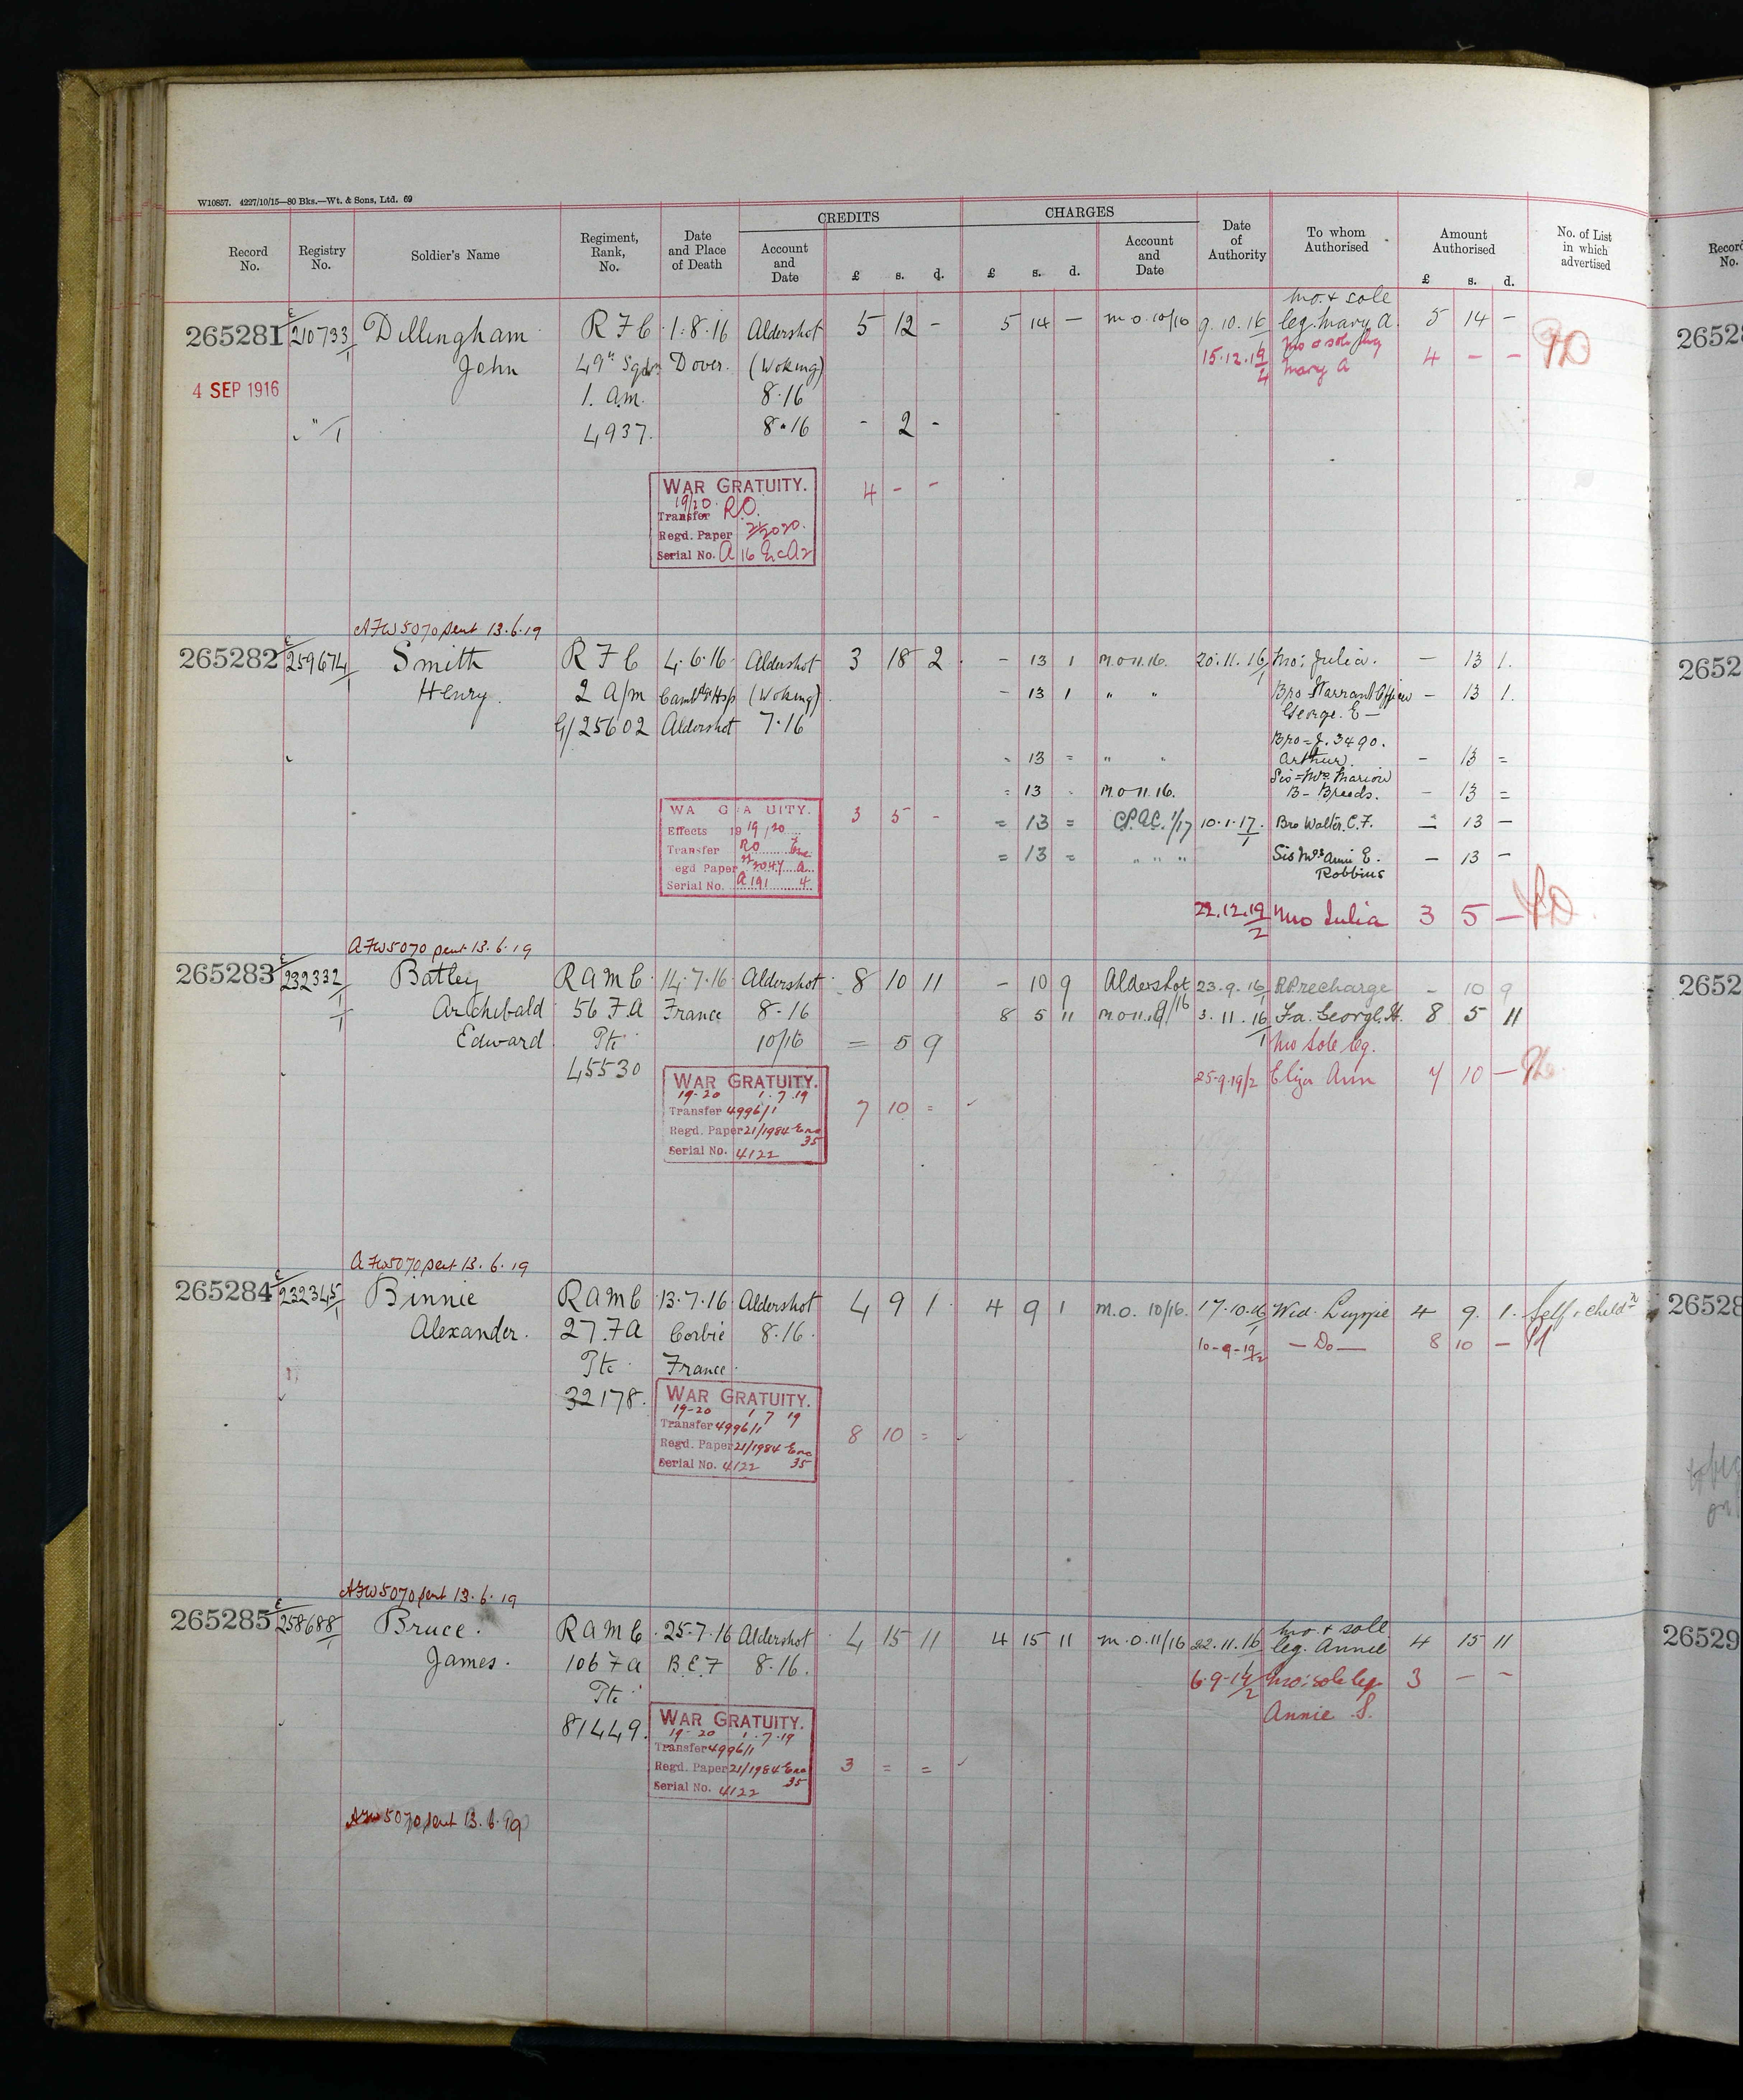 W10857. 4227/10/15—80 Bks.—Wt. & Sons, Ltd. 69
CREDITS CHARGES
Record No. Registry No. Soldier's Name Regiment, Rank, No. Date and Place of Death Account and Date £ s. d. £ s. d. Account and Date Date of Authority To whom Authorised Amount Authorised £ s. d. No. of List in which advertised
Record No.
mo. + sole
265281 E/210733/1 Dillingham R F C 1.8.16 Aldershot 5 12 - 5 14 - M.O. 10/16 9.10.16 leg. Mary A. 5 14 -
John 49th Sqdn Dover. (Woking) 15.12.19/4 mo o sole leg Mary A 4 - -
4 SEP 1916 1. a.m. 8.16
" /1 4937. 8.16 - 2 -
WAR GRATUITY. 4 - -
19/20. R.O.
Transfer
Regd. Paper
Serial No. A 16
AFW 5070 sent 13.6.19
265282 E/259674/1 Smith R F C 4.6.16 Aldershot 3 18 2 - 13 1 M.O 11.16. 20.11.16/1 Mo; Julia. - 13 1.
Henry. 2 a/m Camb'dge Hsp (Woking) - 13 1 " " Bro Warrant Officer - 13 1.
George. E —
G/25602 Aldershot 7.16
Bro = J. 3490.
- 13 = " " Arthur. - 13 =
Sis = Mrs Marion
= 13 - M.O 11.16. B - Breeds. - 13 =
WA G A UITY. 3 5 - = 13 = C.P.A.C. 1/17 10.1.17/1 Bro Walter. C. F. - 13 -
Effects 1919/20
Transfer RO
egd Paper
Serial No. A 191 4
= 13 = " " " Sis Mrs Annie E. - 13 -
Robbins
22.12.19/2 Mo Julia 3 5 -
AFW 5070 sent 13.6.19
265283 E/232332/1 Batley R A M C 14.7.16 Aldershot 8 10 11 - 10 9 Aldershot 9/16 23.9.16/1 R.P. recharge - 10 9
Archibald 56 F A France 8.16 8 5 11 M.O 11.16 3.11.16/1 Fa. George H. 8 5 11
Edward Pte 10/16 = 5 9 Mo Sole leg.
45530 25.9.19/2 Eliza Ann 7 10 -
WAR GRATUITY.
19-20 1.7.19
Transfer 4996/1 7 10 =
Regd. Paper 21/1984 Enc
35
Serial No. 4122
AFW 5070 sent 13.6.19
265284 E/232345/1 Binnie R A M C 13.7.16 Aldershot 4 9 1 4 9 1 M.O. 10/16. 17.10.16/1 Wid. Luppie 4 9. 1. Self + childn
Alexander. 27. F A Corbie 8.16. 10-9-19/2 — Do — 8 10 -
Pte France.
32178.
WAR GRATUITY.
19-20 1 7 19
Transfer 4996/1 8 10 =
Regd. Paper 21/1984 Enc
Serial No. 4122 35
AFW 5070 sent 13.6.19
mo. + sole
265285 E/258688/1 Bruce. R A M C 25.7.16 Aldershot 4 15 11 4 15 11 M.O. 11/16 22.11.16 leg. Annie 4 15 11
James. 106 F A B.E.F 8.16. 6-9-19/2 mo: sole leg 3 - -
Pte Annie S.
81449.
WAR GRATUITY.
19-20 1.7.19
Transfer 4996/1
Regd. Paper 21/1984 Enc 3 = =
35
Serial No. 4122
AFW 5070 sent 13.6.19